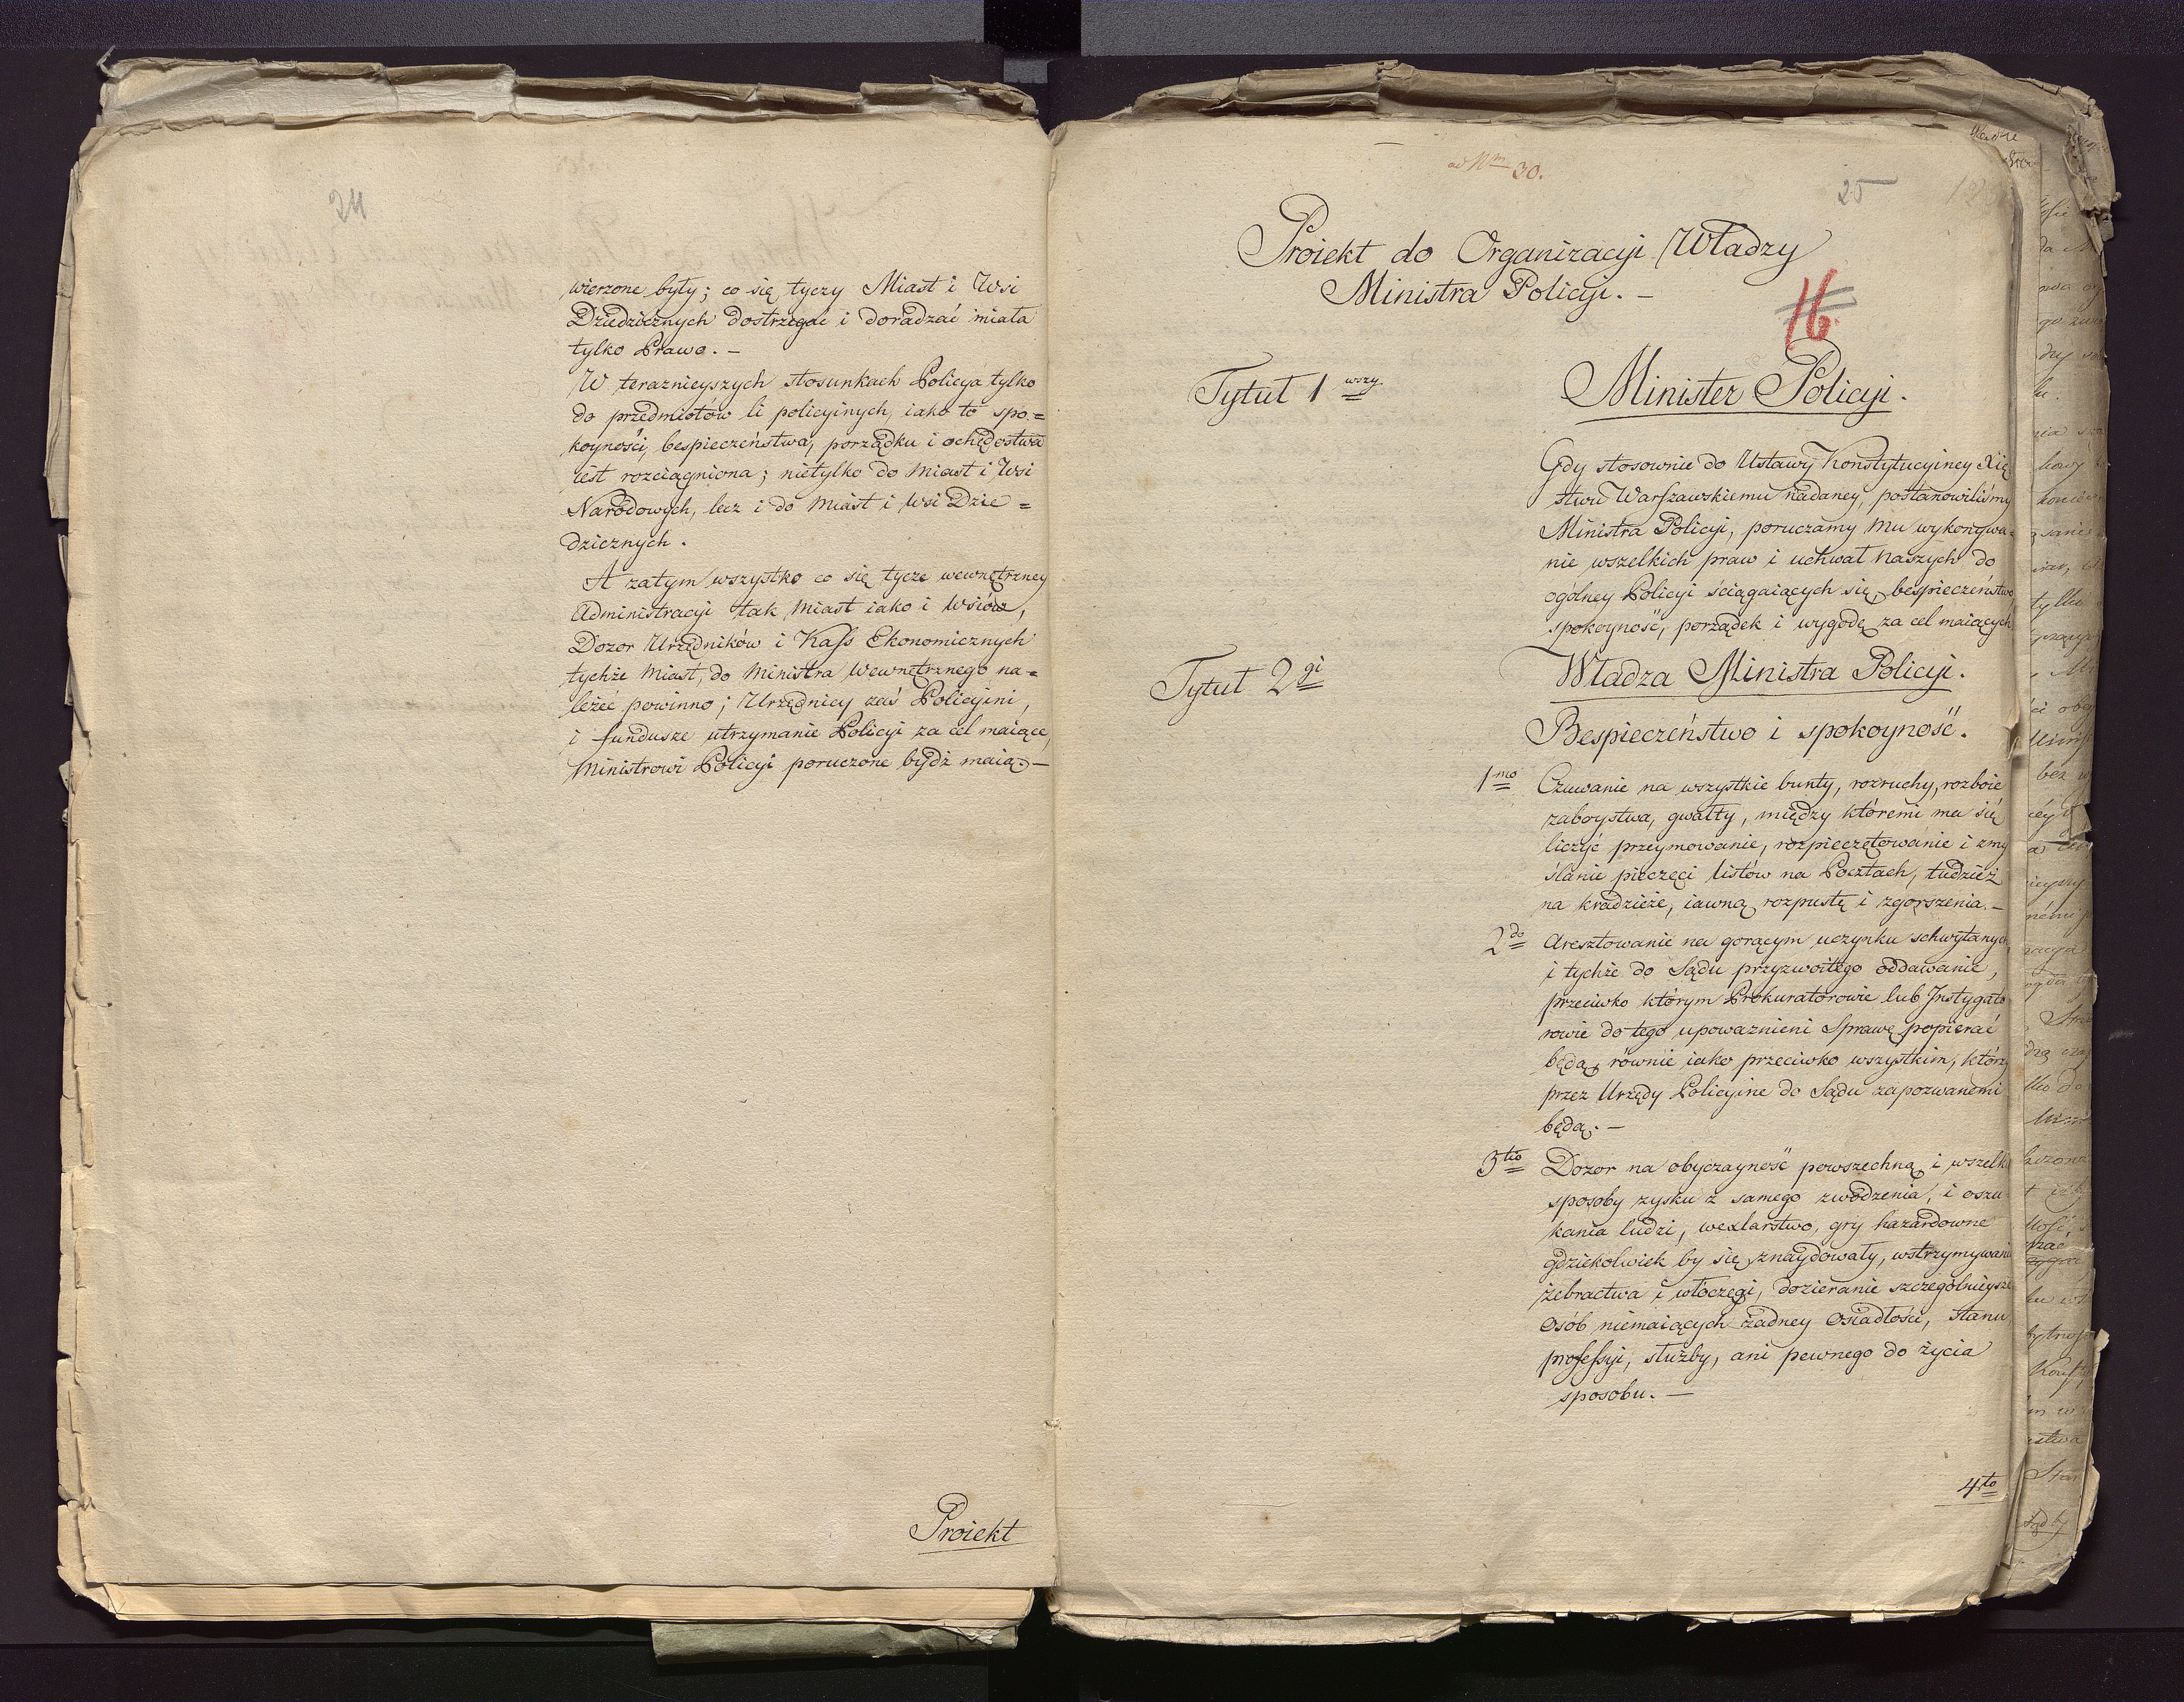 24
wierzone były; co się tyczy Miast i Wsi
Dziedzicznych dostrzegać i doradzać miała
tylko Prawo. –
W teraznieyszych stosunkach Policya tylko
do przedmiotów li policyinych, iako to spo=
koyności, bespieczeństwa, porządku i ochędostwa
iest rozciągniona; nietylko do Miast i Wsi
Narodowych, lecz i do Miast i Wsi Dzie=
dzicznych.
A zatym wszystko co się tycze wewnętrzney
Administracyi tak Miast iako i Wsiów,
Dozor Urzędników i Kass Ekonomicznych
tychże Miast, do Ministra Wewnętrznego na=
leżeć powinno; Urzędnicy zaś Policyini,
i fundusze utrzymanie Policyi za cel maiące,
Ministrowi Policyi poruczone bydź maią –
Proiekt
ad Nm 30.
25
Proiekt do Organizacyi Władzy
Ministra Policyi. –
16
Tytuł 1wszy
Minister Policyi.
Gdy stosownie do Ustawy Konstytucyiney Xię
stwu Warszawskiemu nadaney, postanowiliśmy
Ministra Policyi, poruczamy Mu wykonywa=
nie wszelkich praw i uchwał Naszych do
ogólney Policyi ściągaiących się, bespieczeństwo
spokoyność, porządek i wygodę za cel maiących
Tytuł 2gi
Władza Ministra Policyi.
Bespieczeństwo i spokoyność.
1mo Czuwanie na wszystkie bunty, rozruchy, rozboie
zaboystwa, gwałty, między któremi ma się
liczyć przeymowanie, rozpieczętowanie i zmy
ślanie pieczęci listów na Pocztach, tudzież
na kradzieże, iawną rozpustę i zgorszenia. –
2do Aresztowanie na gorącym uczynku schwytanych
i tychże do Sądu przyzwoitego oddawanie,
przeciwko którym Prokuratorowie lub Instygato
rowie do tego upoważnieni Sprawę popierać
będą, równie iako przeciwko wszystkim, którzy
przez Urzędy Policyine do Sądu zapozwanemi
będą. –
3tio Dozor na obyczayność powszechną i wszelkie
sposoby zysku z samego zwodzenia, i oszu
kania ludzi, wexlarstwo, gry hazardowne
gdziekolwiek by się znaydowały, wstrzymywanie
żebractwa i włóczęgi, dozieranie szczególnieysze
Osób niemaiących żadney Osiadłości, stanu
professyi, służby, ani pewnego do życia
sposobu. –
4to